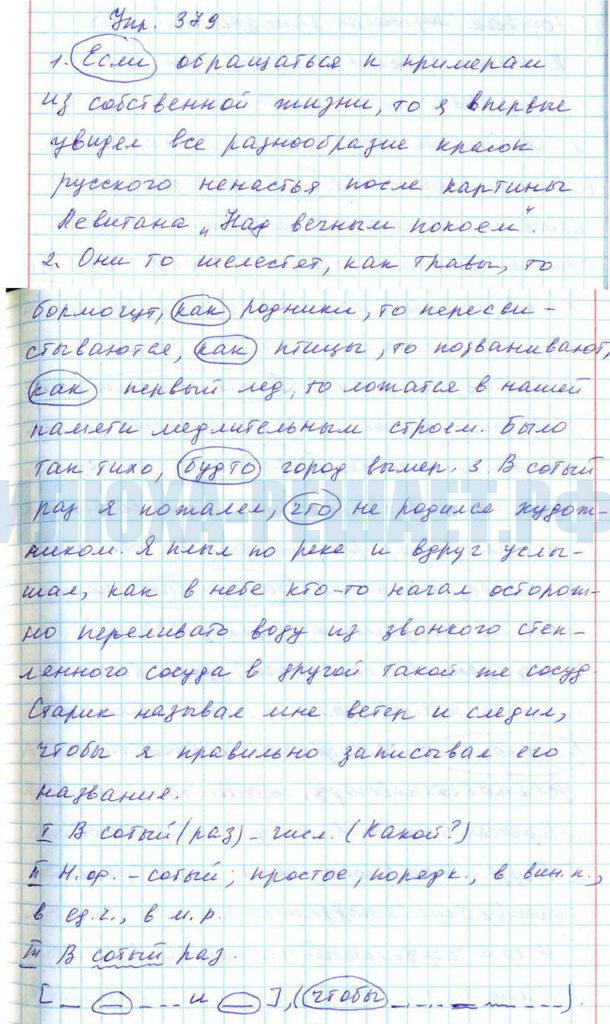 Упр. 379
1. Если обращаться к примерам
из собственной жизни, то я впервые
увидел все разнообразие красок
русского ненастья после картины
Левитана „Над вечным покоем".
2. Они то шелестят, как травы, то
бормочут, как родники, то пересви-
стываются, как птицы, то позванивают,
как первый лед, то ложатся в нашей
памяти медлительным строем. Было
так тихо, будто город вымер. 3. В сотый
раз я пожалел, что не родился худож-
ником. Я плыл по реке и вдруг услы-
шал, как в небе кто-то начал осторож-
но переливать воду из звонкого стек-
лянного сосуда в другой такой же сосуд.
Старик называл мне ветер и следил,
чтобы я правильно записывал его
названия.
I В сотый (раз) – числ. (Какой?)
II Н.ф. – сотый; простое, порядк., в вин.п.,
в ед.ч., в м.р.
III В сотый раз.
[ и ], (чтобы ).